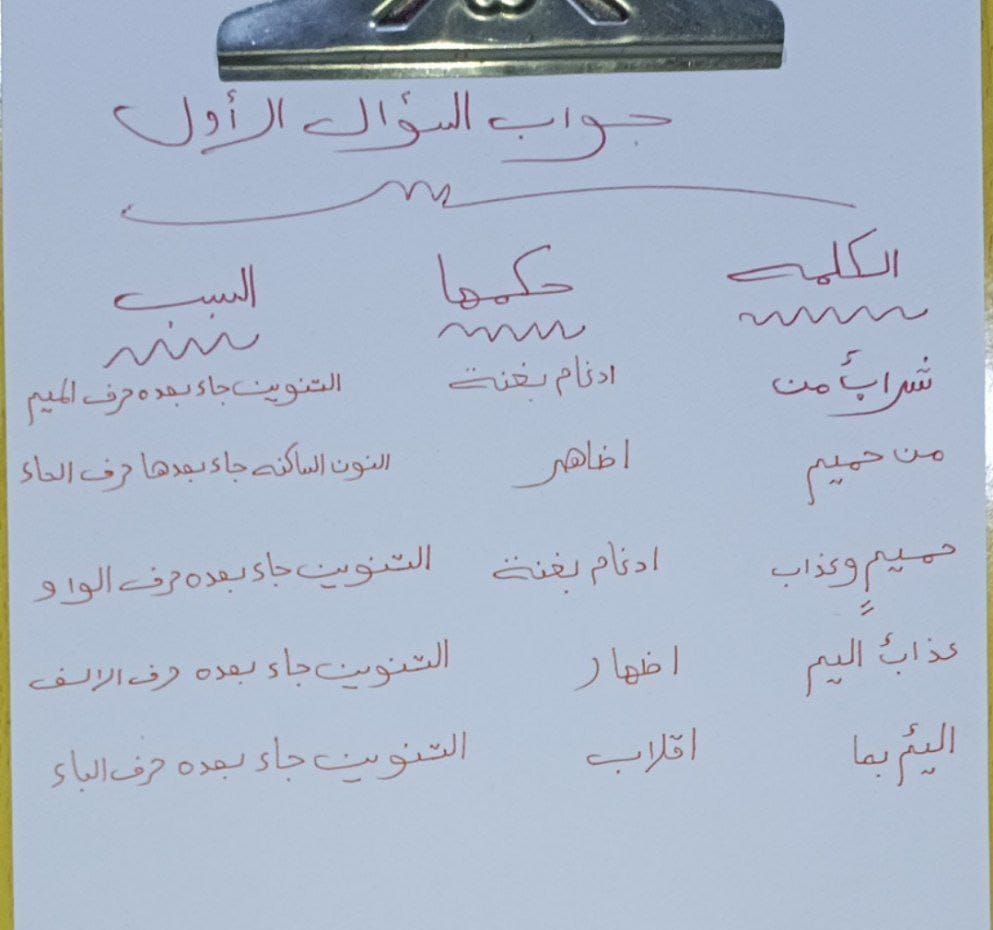 جواب السؤال الأول
الكلمه حكمها السبب
شرابٌ من ادغام بغنة التنوين جاء بعده حرف الميم
من حميم اظاهر النون الساكنه جاء بعدها حرف الحاء
حميمٍ وعذاب ادغام بغنة التنوين جاء بعده حرف الواو
عذابٌ اليم اظهار التنوين جاء بعده حرف الالف
اليمٌ بما اقلاب التنوين جاء بعده حرف الباء